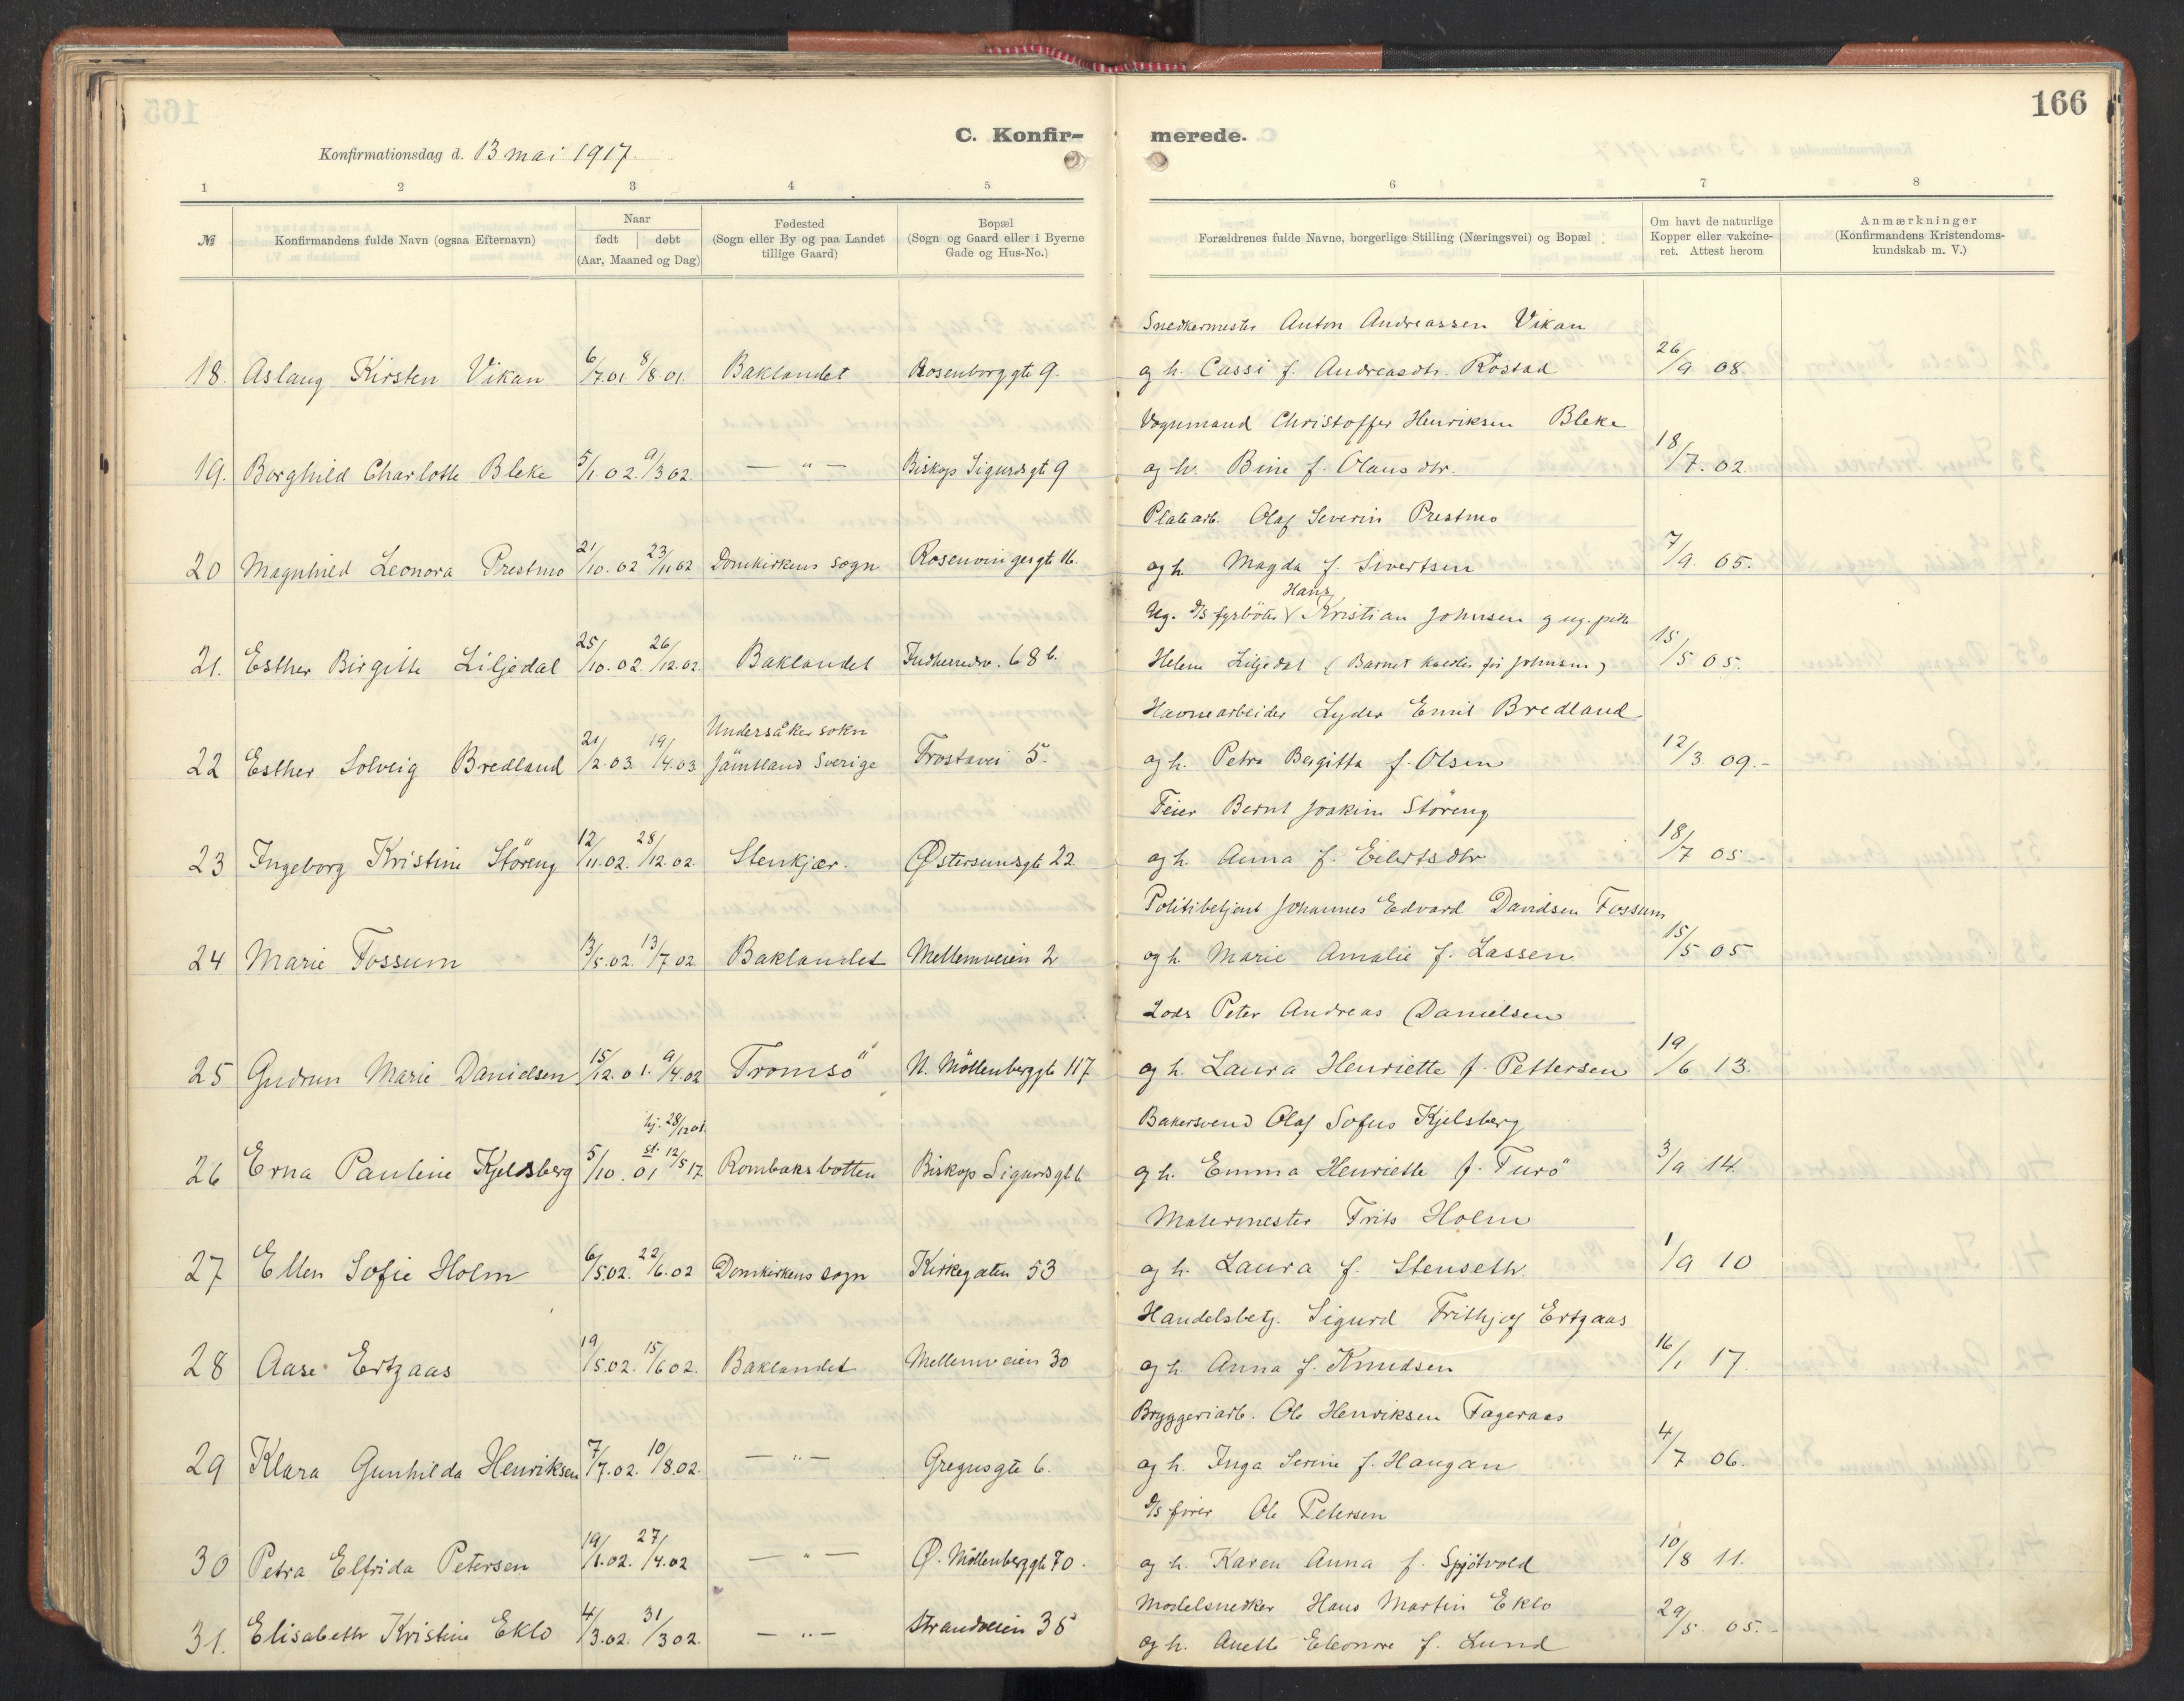 166
C. Konfir- merede.
Konfirmationsdag d. 13 mai 1917.
1 2 3 4 5 6 7 8
№ Konfirmandens fulde Navn (ogsaa Efternavn) Naar født døbt (Aar, Maaned og Dag) Fødested (Sogn eller By og paa Landet tillige Gaard) Bopæl (Sogn og Gaard eller i Byerne Gade og Hus-No.) Forældrenes fulde Navne, borgerlige Stilling (Næringsvei) og Bopæl Om havt de naturlige Kopper eller vakcineret. Attest herom Anmærkninger (Konfirmandens Kristendomskundskab m. V.)
Snedkermester Anton Andreassen Vikan
18. Aslaug Kirsten Vikan 6/7.01 8/8 01. Baklandet Rosenborg gt 9. og h. Cassi f. Andreasdtr. Røstad 26/9 08
Vognmand Christoffer Henriksen Bleke
19. Borghild Charlotte Bleke 5/1. 02. 9/3 02. — " — Biskop Sigurds gt 9 og h. Bine f. Olausdtr. 18/7. 02.
Platearb. Olaf Severin Prestmo
20 Magnhild Leonora Prestmo 21/10. 02 23/11 02 Domkirkens sogn Rosenvingesgt 16. og h. Magda f. Sivertsen 7/9. 05.
Ug. D/S fyrböter Hans Kristian Johnsen og ug. pike
21. Esther Birgitte Liljedal 25/10. 02 26/12. 02. Baklandet Indherredsv. 68 b. Helene Liljedal (Barnet kaldes for Johnsen) 15/5 05.
Havnearbeider Lyder Emil Bredland
22 Esther Solveig Bredland 21/2. 03. 19/4. 03. Undersåker sokn Jämtland Sverige Frostavei 5. og h. Petra Bergitta f. Olsen 12/3 09.-
Feier Bernt Joakim Störeng
23 Ingeborg Kristine Störeng 12/11. 02. 28/12. 02 Stenkjær. Østersundsgt 22. og h. Anna f. Eilertsdtr 18/7 05.-
Politibetjent Johannes Edvard Davidsen Fossum
24 Marie Fossum 13/5. 02. 13/7 02 Baklandet Mellemveien 2 og h. Marie Amalie f. Lassen 15/5 05
Lods Peter Andreas Danielsen
25 Gudrun Marie Danielsen 15/12. 01. 9/4. 02 Tromsö N. Möllenberggt 117 og h. Laura Henriette f. Pettersen 19/6 13.
Bakersvend Olaf Sofus Kjelsberg
26 Erna Pauline Kjeldsberg 5/10. 01 hj. 28/12 01. st. 12/5 17. Rombaksbotten Biskop Sigurdsgt 6 og h. Emma Henriette f. Turö 3/9 14.
Malermester Frits Holm
27 Ellen Sofie Holm 6/5.02. 22/6.02 Domkirkens sogn Kirkegaten 53 og h. Laura f. Stenseth. 1/9 10
Handelsbetj. Sigurd Frithjof Ertzaas
28 Aase Ertzaas 19/5.02. 15/6 02. Baklandet Mellemveien 30 og h. Anna f. Knudsen 16/1 17.
Bryggeriarb. Ole Henriksen Fageraas
29 Klara Gunhilda Henriksen 7/7. 02. 10/8. 02. — " — Gregusgt 6. og h. Inga Serine f. Haugan 4/7 06.
D/S fører Ole Petersen
30 Petra Elfrida Petersen 19/1. 02. 27/4. 02 — " — Ø. Möllenberggt 70. og h. Karen Anna f. Spjötvold 10/8 11.
Modelsnedker Hans Martin Eklo
31. Elisabeth Kristine Eklo 4/3. 02. 31/3 02. — " — Strandveien 35 og h. Anette Eleonore f. Lund 29/5 05.-